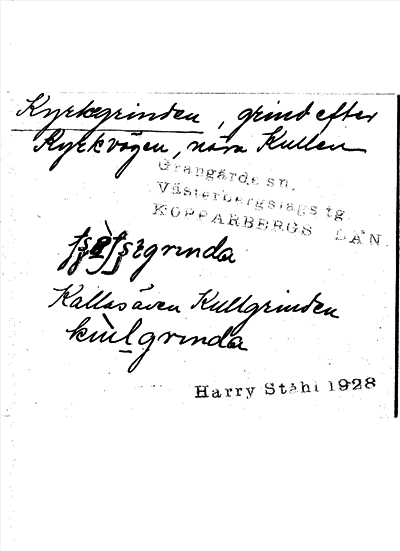 Kyrkgrinden, grind efter
Kyrkvägen, nära Kullen
Grangärde sn.
Västerbergslags tg.
KOPPARBERGS LÄN
grinda
Kallas även Kullgrinden
grinda
Harry Ståhl 1928